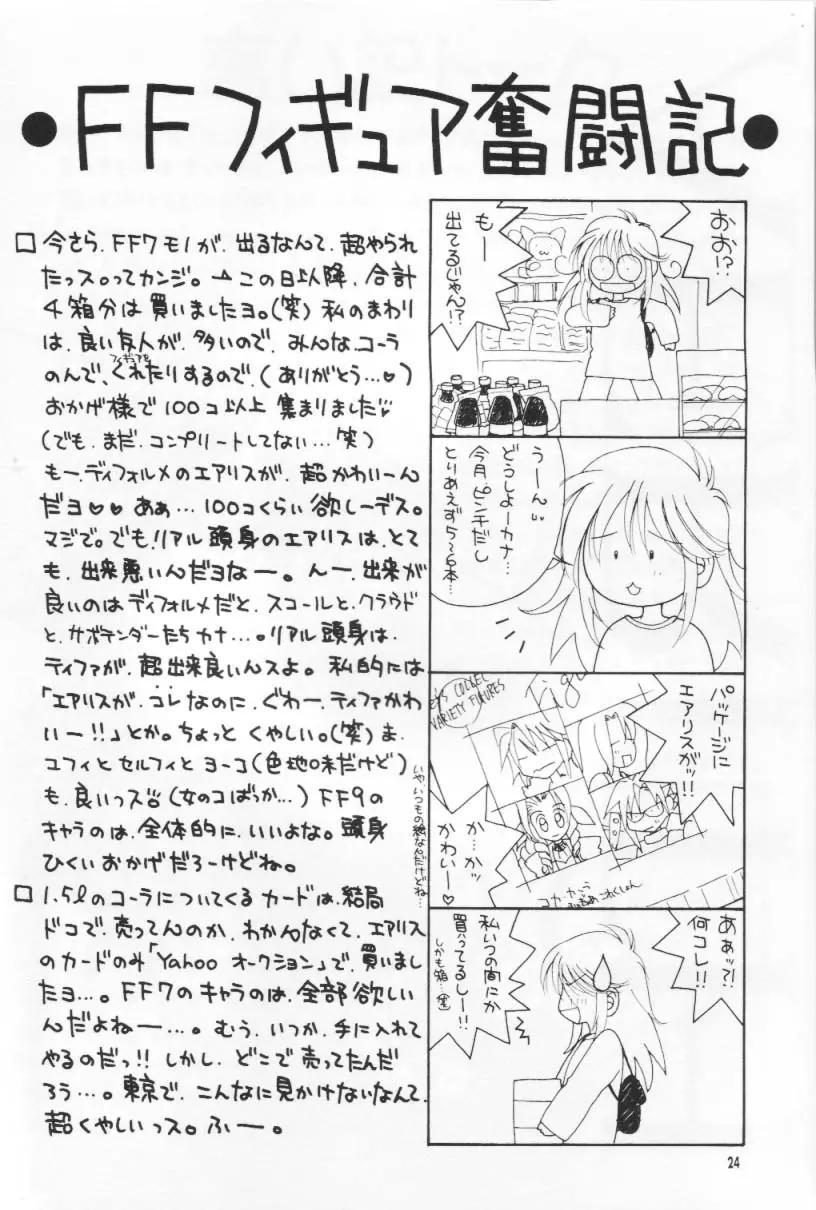 ●FFフィギュア奮闘記●
□今さら、FF7モノが、出るなんて、超やられ
たっス。ってカンジ。→この日以降、合計
4箱分は買いましたヨ。(笑)私のまわり
は、良い友人が、多いので、みんな、コーラ
のんで、フィギュアをくれたりするので、(ありがとう…♡)
おかげ様で100コ以上集まりました
(でも、まだ、コンプリートしてない…笑)
もー、ディフォルメのエアリスが、超かわいーん
だヨ♡♡あぁ…100コくらい欲しーデス。
マジで。でも、リアル頭身のエアリスは、とて
も、出来悪いんだヨなー。んー、出来が
良いのはディフォルメだと、スコールと、クラウド
と、サボテンダーたちカナ…。リアル頭身は、
ティファが、超出来良いんスよ。私的には
「エアリスが、コレなのに、ぐわー、ティファかわ
いー!!」とか。ちょっとくやしい。(笑)ま、
ユフィとセルフィとヨーコ(色地味だけど)
も、良いっス(女のコばっか…)FF9の
キャラのは、全体的に、いいよな。頭身
ひくいおかげだろーけどね。
□1.5ℓのコーラについてくるカードは、結局
ドコで、売ってんのか、わかんなくて、エアリス
のカードのみ「Yahooオークション」で、買いまし
たヨ…。FF7のキャラのは、全部欲しい
んだよねー…。むう、いつか、手に入れて
やるのだっ!!しかし、どこで売ってたんだ
ろう…。東京で、こんなに見かけないなんて、
超くやしいっス。ふー。
おお!?
もー
出てるじゃん!?
うーん
どうしよーカナ…
今月、ピンチだし
とりあえず5〜6本…
パッケージに
エアリスがッ!!
COLLEC
VARIETY FIGURES
か…かッ
かわいー♡
いや、いつもの絵なんだけどね…
あぁッ?!
何コレ!!
私いつの間にか
買ってるしー!!
しかも箱…(笑)
24